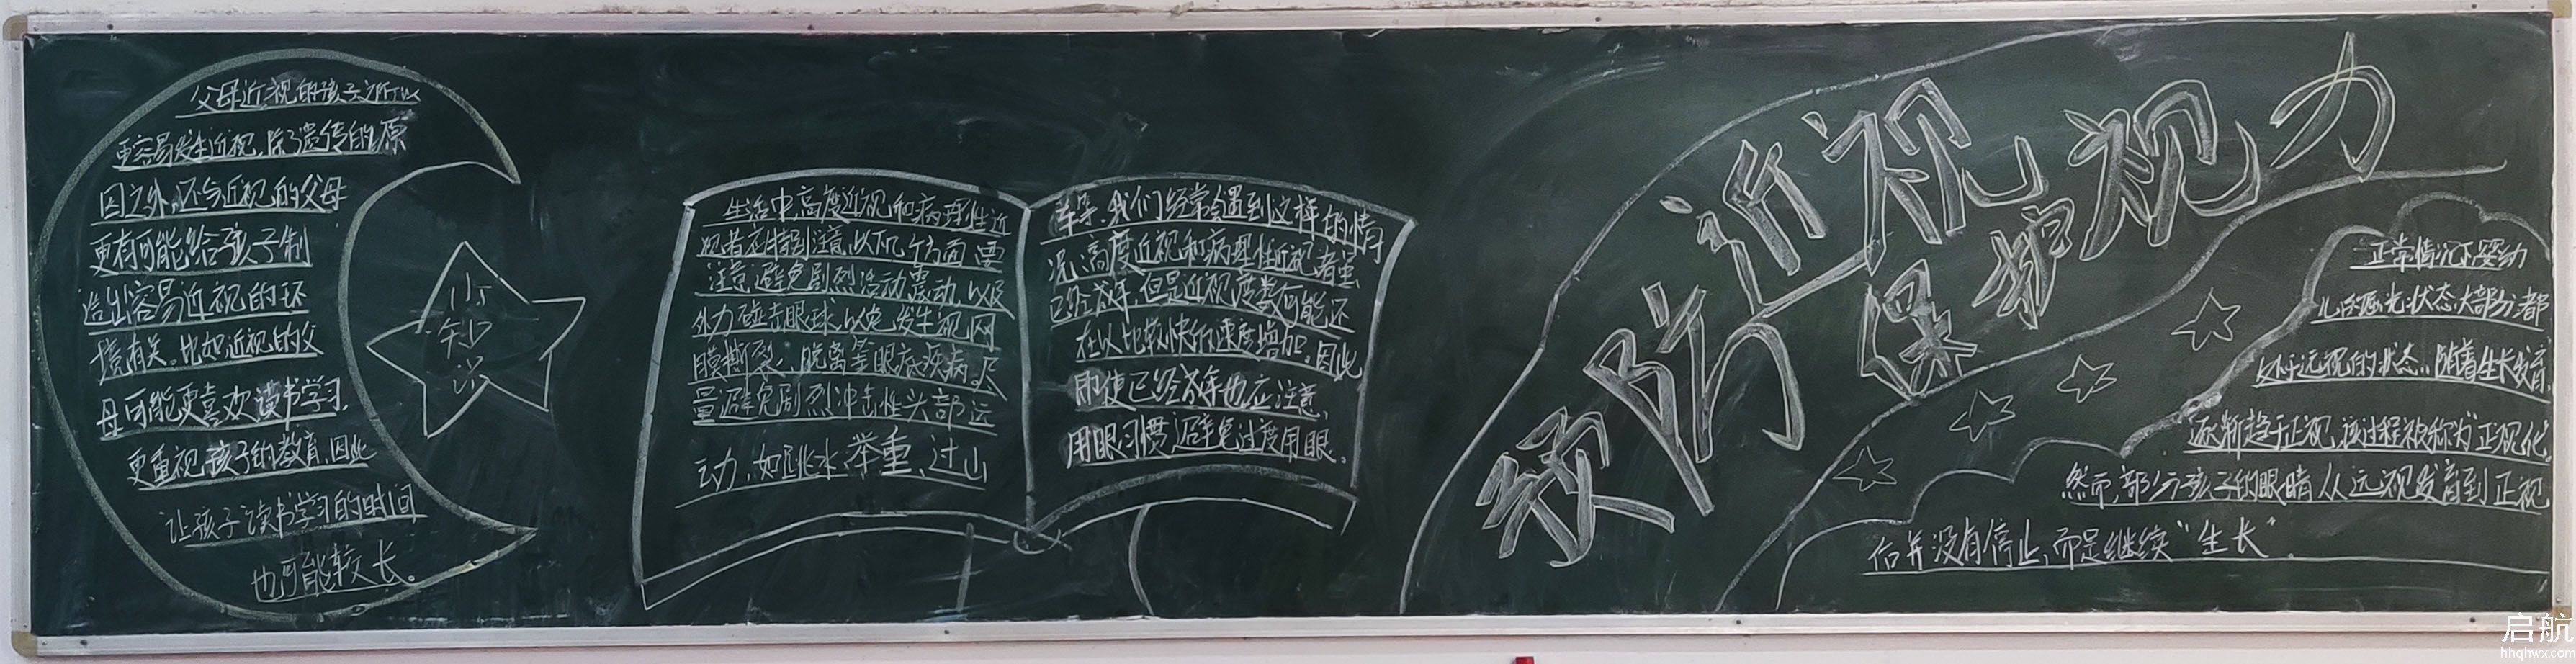 父母近视的孩子之所以
更容易发生近视,除了遗传的原
因之外,还与近视的父母
更有可能给孩子制
造出容易近视的环
境有关。比如近视的父
母可能更喜欢读书学习,
更重视孩子的教育,因此
让孩子读书学习的时间
也可能较长。
小
知
识
生活中,高度近视和病理性近
视者应特别注意,以下几个方面要
注意,避免剧烈活动震动,以及
外力碰击眼球,以免发生视网
膜撕裂、脱离等眼病疾病。尽
量避免剧烈冲击性头部运
动,如跳水、举重、过山
车等。我们经常会遇到这样的情
况,高度近视和病理性近视者虽
已经成年,但是近视度数可能还
在以比较快的速度增加。因此
即使已经成年也应注意,
用眼习惯,避免过度用眼。
预防近视
保护视力
正常情况下婴幼
儿屈光状态大部分都
处于远视的状态,随着生长发育,
逐渐趋于正视,该过程被称为“正视化”。
然而,部分孩子的眼睛从远视发育到正视
后并没有停止,而是继续“生长”。
启航
hhqhwx.com